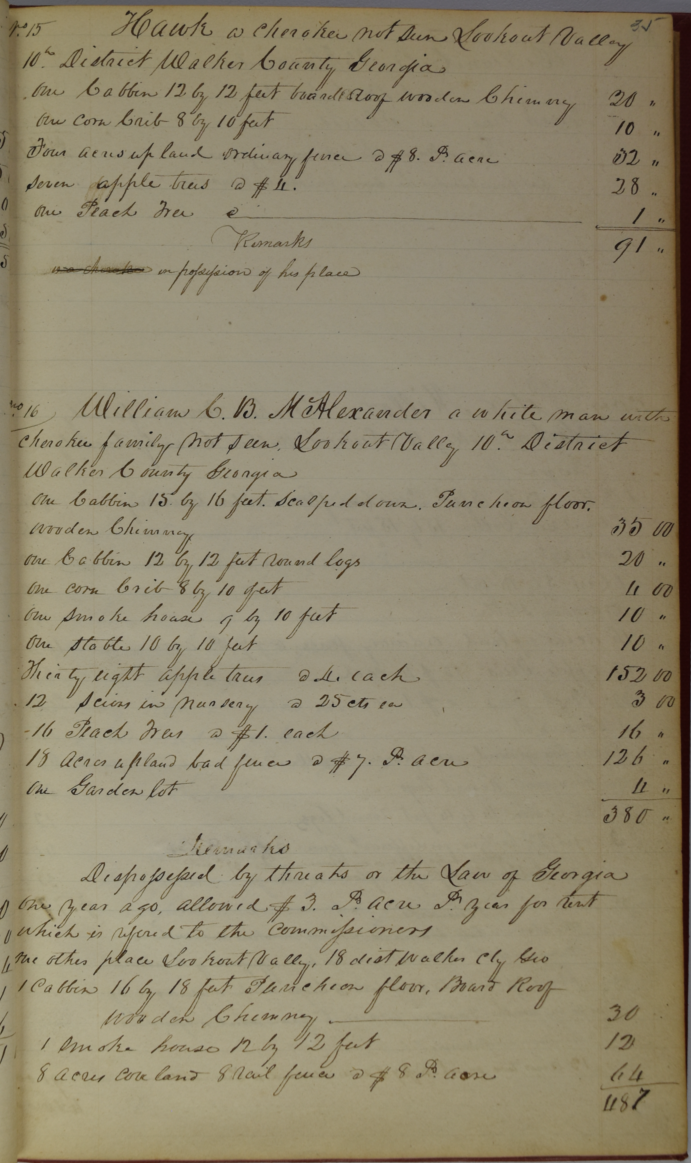 35
No 15 Hawk a cherokee not seen Lookout Valley
10th District Walker County Georgia
one Cabbin 12 by 12 feet boards Roof wooden Chimney 20 "
one corn Crib 8 by 10 feet 10 "
Four acres up land ordinary fence @ $8. Pr. acre 32 "
seven apple trees @ $4. 28 "
one Peach Tree @ 1 "
Remarks 91 "
in possession of his place
No 16 William C. B. McAlexander a white man with
cherokee family not seen. Lookout Valley 10th District
Walker County Georgia
one Cabbin 15 by 16 feet. Scalped down. Puncheon floor.
wooden Chimney 35 00
one Cabbin 12 by 12 feet round logs 20 "
one corn Crib 8 by 10 feet 4 00
one smoke house 9 by 10 feet 10 "
one stable 10 by 10 feet 10 "
Thirty eight apple trees @ 4. each 152 00
12 Scions in nursery @ 25 cts ea 3 00
16 Peach Trees @ $1. each 16 "
18 Acres upland bad fence @ $7. Pr. acre 126 "
one Garden lot 4 "
380 "
Remarks
Dispossessed by threats or the Law of Georgia
one year ago, allowed $3. Pr. acre Pr. year for rent
which is refered to the commissioners
one other place Lookout Vally, 18 dist Walker Cty Geo
1 Cabbin 16 by 18 feet Puncheon floor, Board Roof
wooden Chimney 30
1 smoke house 12 by 12 feet 12
8 acres cove land 8 rail fence @ $8 Pr. acre 64
487